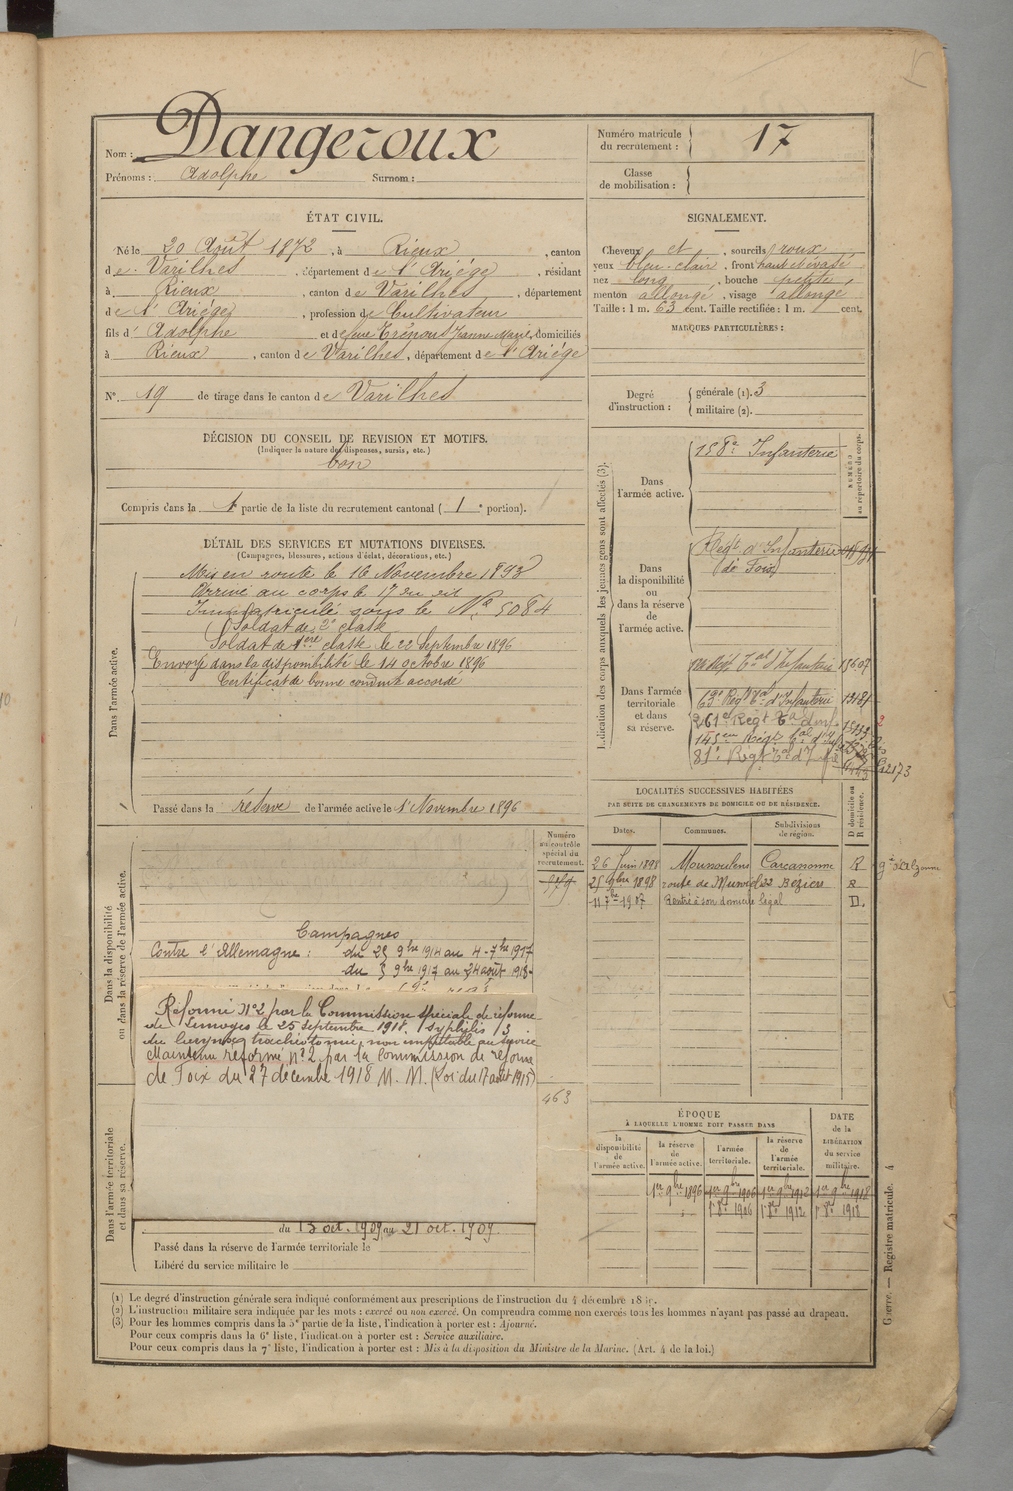 Nom : Dangeroux
Prénoms : Adolphe Surnom :
Numéro matricule du recrutement : 17
Classe de mobilisation :
ÉTAT CIVIL.
Né le 20 Août 1872, à Rieux, canton
de Varilhes, département de l'Ariége, résidant
à Rieux, canton de Varilhes, département
de l'Ariége, profession de Cultivateur
fils d' Adolphe et de feue Jeanne Marie, domiciliés
à Rieux, canton de Varilhes, département de l'Ariége
N° 19 de tirage dans le canton de Varilhes
SIGNALEMENT.
Cheveux et, sourcils roux
yeux bleu-clair, front haut et évasé
nez long, bouche petite,
menton allongé, visage allongé
Taille : 1 m. 63 cent. Taille rectifiée : 1 m. cent.
MARQUES PARTICULIÈRES :
Degré d'instruction :
générale (1). 3
militaire (2).
DÉCISION DU CONSEIL DE REVISION ET MOTIFS.
(Indiquer la nature des dispenses, sursis, etc.)
bon
Compris dans la 1e partie de la liste du recrutement cantonal (1e portion).
DÉTAIL DES SERVICES ET MUTATIONS DIVERSES.
(Campagnes, blessures, actions d'éclat, décorations, etc.)
Dans l'armée active.
Mis en route le 16 Novembre 1893
Arrivé au corps le 17 du dit
Immatriculé sous le N° 5084
Soldat de 2e classe
Soldat de 1ere classe le 22 Septembre 1896
Envoyé dans la disponibilité le 14 octobre 1896
Certificat de bonne conduite accordé
Passé dans la réserve de l'armée active le 1er Novembre 1896
Indication des corps auxquels les jeunes gens sont affectés (3).
NUMÉRO au répertoire du corps.
Dans l'armée active.
158e Infanterie
Dans la disponibilité ou dans la réserve de l'armée active.
Régt d'Infanterie
de Foix
Dans l'armée territoriale et dans sa réserve.
Tal d'Infanterie 15607
63e Régt Tal d'Infanterie 13181
261e Régt Tal d'Inf
145em Régt Tal d'Inf
81e Régt Tal d'Inf
12173
LOCALITÉS SUCCESSIVES HABITÉES
PAR SUITE DE CHANGEMENTS DE DOMICILE OU DE RÉSIDENCE.
Dates. Communes. Subdivisions de région. D domicile ou R résidence.
26 Juin 1898 Carcassonne R
25 9bre 1898 route de 22 Beziers R
11 7bre 1907 Rentré à son domicile légal D.
Dans la disponibilité ou dans la réserve de l'armée active.
Numéro au contrôle spécial du recrutement.
Campagnes
Contre l'Allemagne : du 25 9bre 1914 au 4 - 7bre 1917
du 3 9bre 1917 au 24 août 1918
Réformé N°2 par la Commission spéciale de réforme
de Limoges le 25 septembre 1918. Syphilis
du larynx, trachéotomie, non imputable au service
Maintenu réformé n°2 par la commission de réforme
de Foix du 27 décembre 1918 M. M. (Loi du 17 août 1915)
463
Dans l'armée territoriale et dans sa réserve.
du 13 oct. 1909 au 21 oct. 1909.
Passé dans la réserve de l'armée territoriale le
Libéré du service militaire le
ÉPOQUE
À LAQUELLE L'HOMME DOIT PASSER DANS
la disponibilité de l'armée active. la réserve de l'armée active. l'armée territoriale. la réserve de l'armée territoriale.
DATE de la LIBÉRATION du service militaire.
1er 9bre 1896 1er 9bre 1906 1er 9bre 1912 1er 9bre 1918
1906 1912 1918
Guerre. — Registre matricule. 4
(1) Le degré d'instruction générale sera indiqué conformément aux prescriptions de l'instruction du 4 décembre
(2) L'instruction militaire sera indiquée par les mots : exercé ou non exercé. On comprendra comme non exercés tous les hommes n'ayant pas passé au drapeau.
(3) Pour les hommes compris dans la 5e partie de la liste, l'indication à porter est : Ajourné.
Pour ceux compris dans la 6e liste, l'indication à porter est : Service auxiliaire.
Pour ceux compris dans la 7e liste, l'indication à porter est : Mis à la disposition du Ministre de la Marine. (Art. 4 de la loi.)